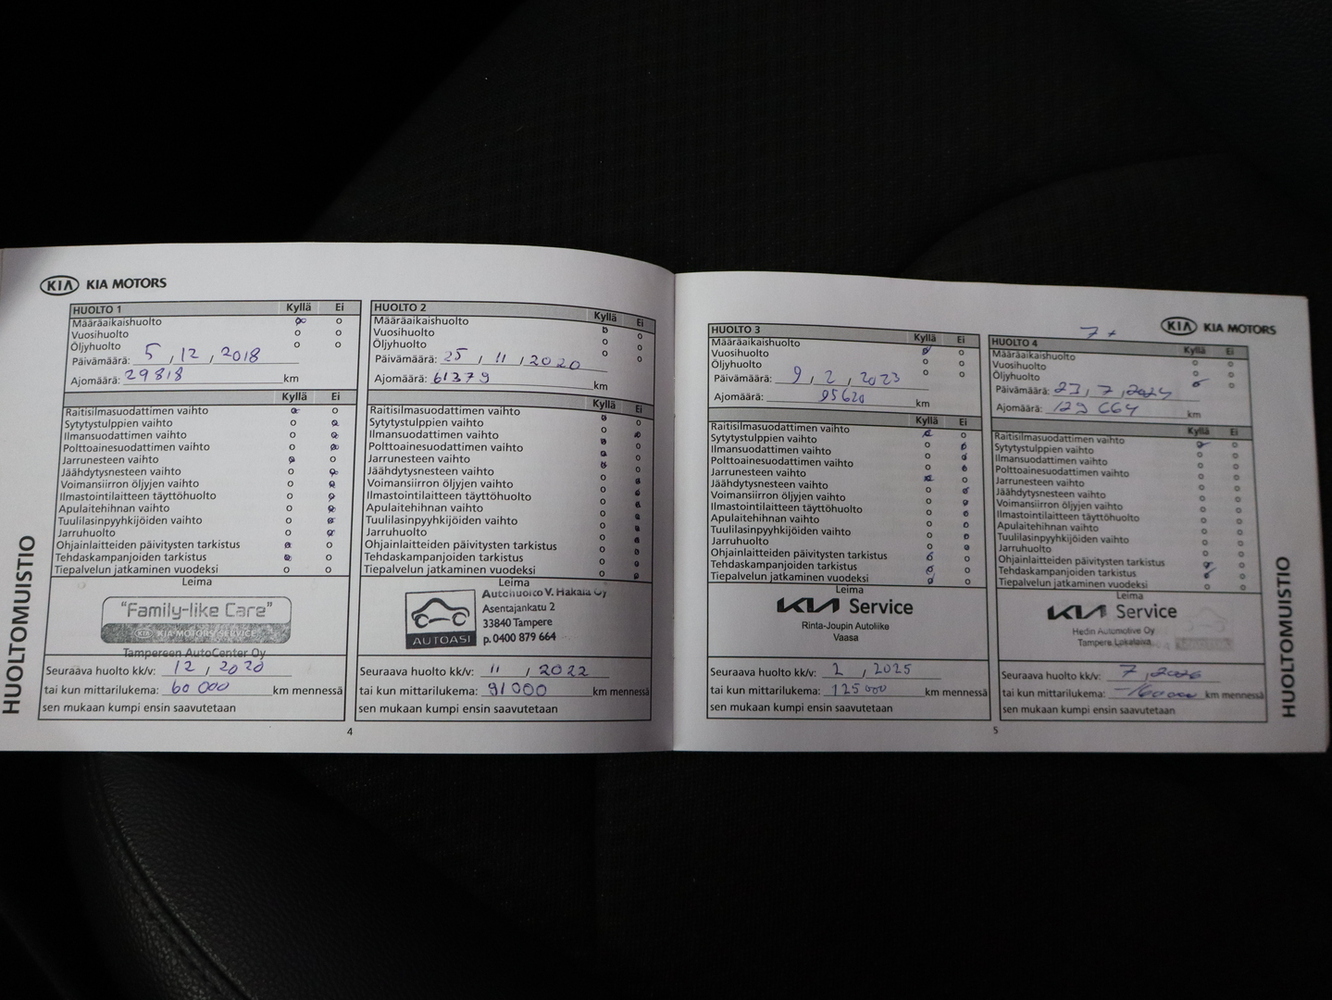 KIA KIA MOTORS
HUOLTO 1 Kyllä Ei
Määräaikaishuolto
Vuosihuolto
Öljyhuolto
Päivämäärä: 5, 12, 2018
Ajomäärä: 29818 km
Kyllä Ei
Raitisilmasuodattimen vaihto
Sytytystulppien vaihto
Ilmansuodattimen vaihto
Polttoainesuodattimen vaihto
Jarrunesteen vaihto
Jäähdytysnesteen vaihto
Voimansiirron öljyjen vaihto
Ilmastointilaitteen täyttöhuolto
Apulaitehihnan vaihto
Tuulilasinpyyhkijöiden vaihto
Jarruhuolto
Ohjainlaitteiden päivitysten tarkistus
Tehdaskampanjoiden tarkistus
Tiepalvelun jatkaminen vuodeksi
Leima
"Family-like Care"
KIA KIA MOTORS SERVICE
Tampereen AutoCenter Oy
Seuraava huolto kk/v: 12, 2020
tai kun mittarilukema: 60 000 km mennessä
sen mukaan kumpi ensin saavutetaan
HUOLTOMUISTIO
HUOLTO 2 Kyllä Ei
Määräaikaishuolto
Vuosihuolto
Öljyhuolto
Päivämäärä: 25, 11, 2020
Ajomäärä: 61379 km
Kyllä Ei
Raitisilmasuodattimen vaihto
Sytytystulppien vaihto
Ilmansuodattimen vaihto
Polttoainesuodattimen vaihto
Jarrunesteen vaihto
Jäähdytysnesteen vaihto
Voimansiirron öljyjen vaihto
Ilmastointilaitteen täyttöhuolto
Apulaitehihnan vaihto
Tuulilasinpyyhkijöiden vaihto
Jarruhuolto
Ohjainlaitteiden päivitysten tarkistus
Tehdaskampanjoiden tarkistus
Tiepalvelun jatkaminen vuodeksi
Leima
Autohuolto V. Hakala Oy
Asentajankatu 2
33840 Tampere
p. 0400 879 664
AUTOASI
Seuraava huolto kk/v: 11, 2022
tai kun mittarilukema: 91000 km mennessä
sen mukaan kumpi ensin saavutetaan
4
HUOLTO 3 Kyllä Ei
Määräaikaishuolto
Vuosihuolto
Öljyhuolto
Päivämäärä: 9, 2, 2023
Ajomäärä: 95620 km
Kyllä Ei
Raitisilmasuodattimen vaihto
Sytytystulppien vaihto
Ilmansuodattimen vaihto
Polttoainesuodattimen vaihto
Jarrunesteen vaihto
Jäähdytysnesteen vaihto
Voimansiirron öljyjen vaihto
Ilmastointilaitteen täyttöhuolto
Apulaitehihnan vaihto
Tuulilasinpyyhkijöiden vaihto
Jarruhuolto
Ohjainlaitteiden päivitysten tarkistus
Tehdaskampanjoiden tarkistus
Tiepalvelun jatkaminen vuodeksi
Leima
KIA Service
Rinta-Joupin Autoliike
Vaasa
Seuraava huolto kk/v: 2, 2025
tai kun mittarilukema: 125000 km mennessä
sen mukaan kumpi ensin saavutetaan
7+
KIA KIA MOTORS
HUOLTO 4 Kyllä Ei
Määräaikaishuolto
Vuosihuolto
Öljyhuolto
Päivämäärä: 23, 7, 2024
Ajomäärä: 129 664 km
Kyllä Ei
Raitisilmasuodattimen vaihto
Sytytystulppien vaihto
Ilmansuodattimen vaihto
Polttoainesuodattimen vaihto
Jarrunesteen vaihto
Jäähdytysnesteen vaihto
Voimansiirron öljyjen vaihto
Ilmastointilaitteen täyttöhuolto
Apulaitehihnan vaihto
Tuulilasinpyyhkijöiden vaihto
Jarruhuolto
Ohjainlaitteiden päivitysten tarkistus
Tehdaskampanjoiden tarkistus
Tiepalvelun jatkaminen vuodeksi
Leima
KIA Service
Hedin Automotive Oy
Tampere Lakalaiva
Seuraava huolto kk/v: 7, 2026
tai kun mittarilukema: ~160000 km mennessä
sen mukaan kumpi ensin saavutetaan
5
HUOLTOMUISTIO